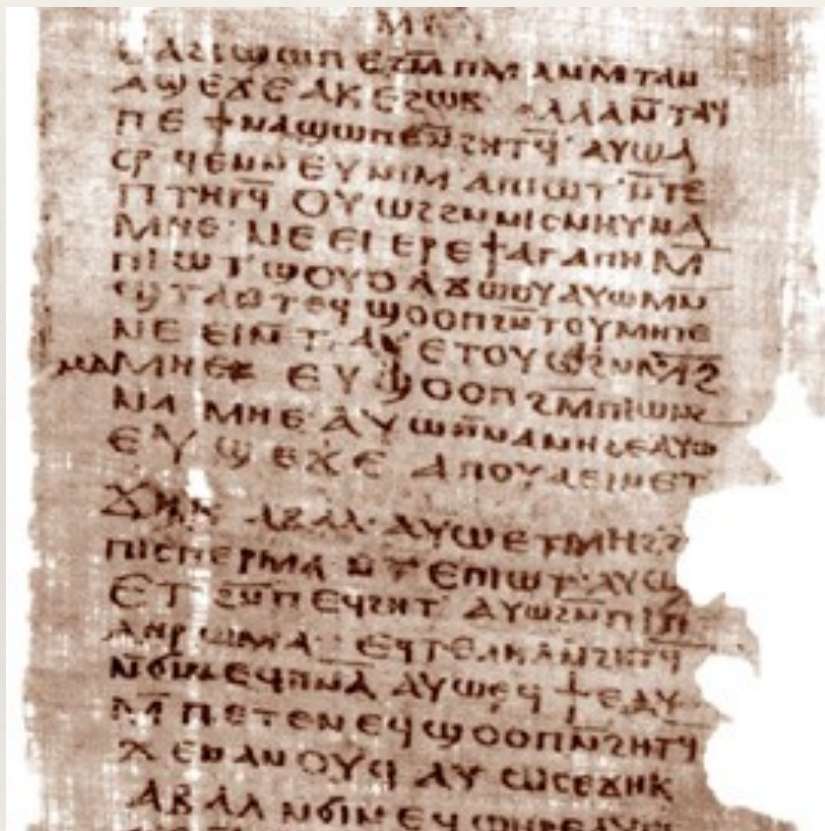 ⲙⲅ
ⲉⲁϩⲓϣⲱⲡⲉ ϩⲙ̄ ⲡⲙⲁ ⲛⲙ̄ⲧⲁⲛ
ⲁϣⲉϫⲉ ⲁⲕⲉϩⲱⲃ ⲁⲗⲗⲁ ⲛ̄ⲧⲁϥ
ⲡⲉϯⲛⲁϣⲱⲡⲉ ⲛ̄ϩⲏⲧϥ̄ ⲁⲩⲱ ⲁ
ⲥⲣϥⲉ ⲛⲛⲉⲩ ⲛⲓⲙ ⲁⲡⲓⲱⲧ ⲛ̄ⲧⲉ
ⲡⲧⲏⲣϥ̄ ⲟⲩⲱϩ ϩⲛ ⲛⲓⲥⲛⲏⲩ ⲛⲁ
ⲙⲏⲉ ⲛⲉⲉⲓ ⲉⲣⲉ ϯⲁⲅⲁⲡⲏ ⲙ̄
ⲡⲓⲱⲧ ϣⲟⲩⲟ ⲁϫⲱⲟⲩ ⲁⲩⲱ ⲙⲛ̄
ϣⲧⲁ ⲛⲧⲉϥ ϣⲟⲟⲡ ϩⲛ̄ ⲧⲟⲩⲙⲏⲧⲉ
ⲛⲉⲉⲓ ⲛ̄ⲧⲁⲩ ⲉⲧⲟⲩⲱⲛϩ
ⲙⲁⲙⲏⲉ ⲉⲩϣⲟⲟⲡ ϩⲙ̄ ⲡⲓⲱⲛϩ
ⲛⲁⲙⲏⲉ ⲁⲩⲱ ⲛ̄ⲛⲁⲛⲏϩⲉ ⲁⲩⲱ
ⲉⲩϣⲉϫⲉ ⲁⲡⲟⲩⲁⲉⲓⲛ ⲉⲧ
ϫⲏⲕ ⲁⲃⲁⲗ ⲁⲩⲱ ⲉⲧⲙⲏϩ ϩ
ⲡⲓⲥⲡⲉⲣⲙⲁ ⲛ̄ⲧⲉ ⲡⲓⲱⲧ ⲁⲩⲱ
ⲉⲧϩⲛ̄ ⲡⲉϥϩⲏⲧ ⲁⲩⲱ ϩⲛ̄ ⲡⲓⲡ
ⲗⲏⲣⲱⲙⲁ ⲉϥⲧⲉⲗⲏⲗ ⲛ̄ϩⲏⲧϥ̄
ⲛ̄ϭⲓ ⲡⲉϥⲡⲛ̄ⲁ̄ ⲁⲩⲱ ⲉϥϯⲉⲁⲩ
ⲙ̄ⲡⲉⲧⲉⲛⲉϥϣⲟⲟⲡ ⲛ̄ϩⲏⲧϥ̄
ϫⲉ ⲛⲁⲛⲟⲩϥ ⲁⲩⲱ ⲥⲉϫⲏⲕ
ⲁⲃⲁⲗ ⲛϭⲓ ⲛⲉϥϣⲏⲣⲉ ⲁⲩⲱ